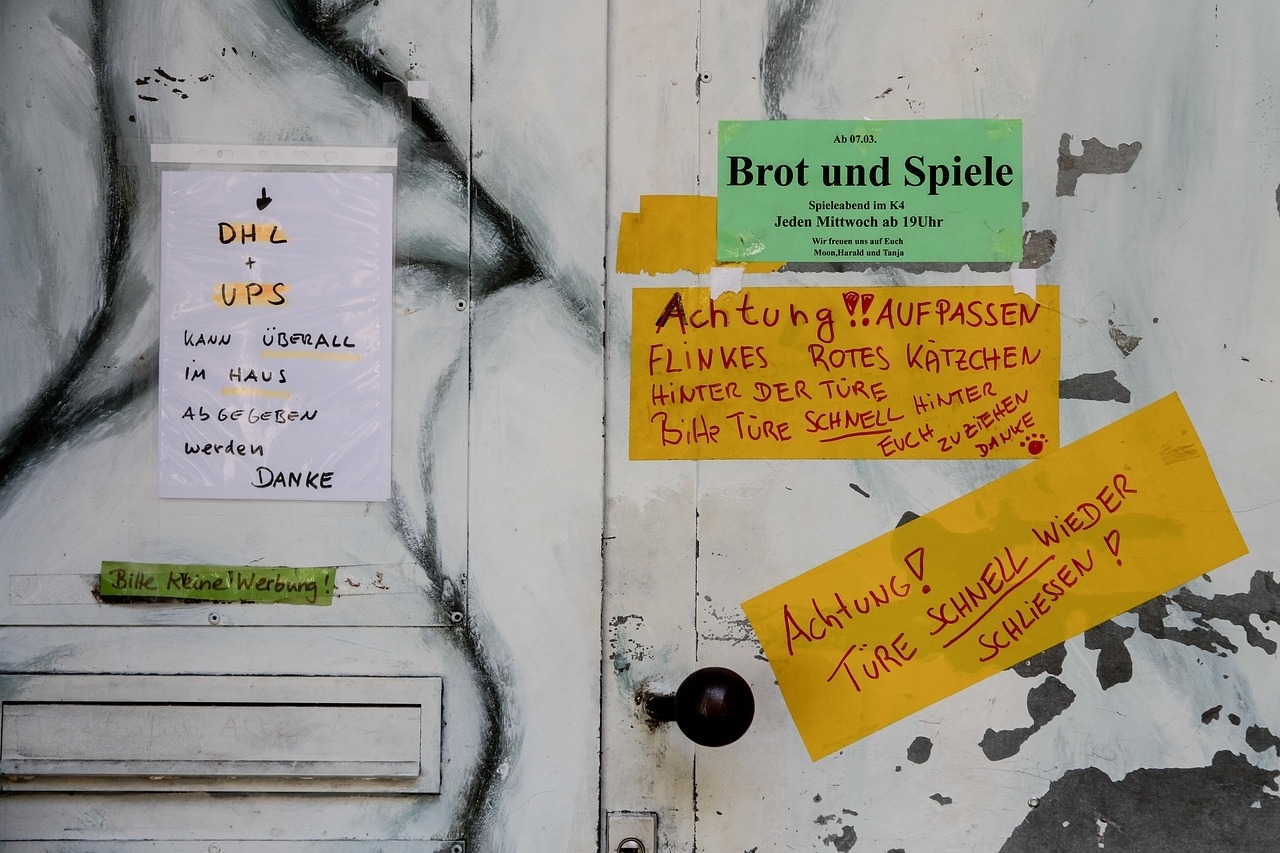 ↓
DHL
+
UPS
KANN ÜBERALL
im HAUS
AbGEGEBEN
werden
DANKE
Bitte keine Werbung!
Ab 07.03.
Brot und Spiele
Spieleabend im K4
Jeden Mittwoch ab 19Uhr
Wir freuen uns auf Euch
Moon,Harald und Tanja
Achtung!! AUFPASSEN
FLINKES ROTES KÄTZCHEN
HINTER DER TÜRE
Bitte TÜRE SCHNELL HINTER
EUCH ZUZIEHEN
DANKE
AchTUNG!
TÜRE SCHNELL WIEDER
SCHLIESSEN!